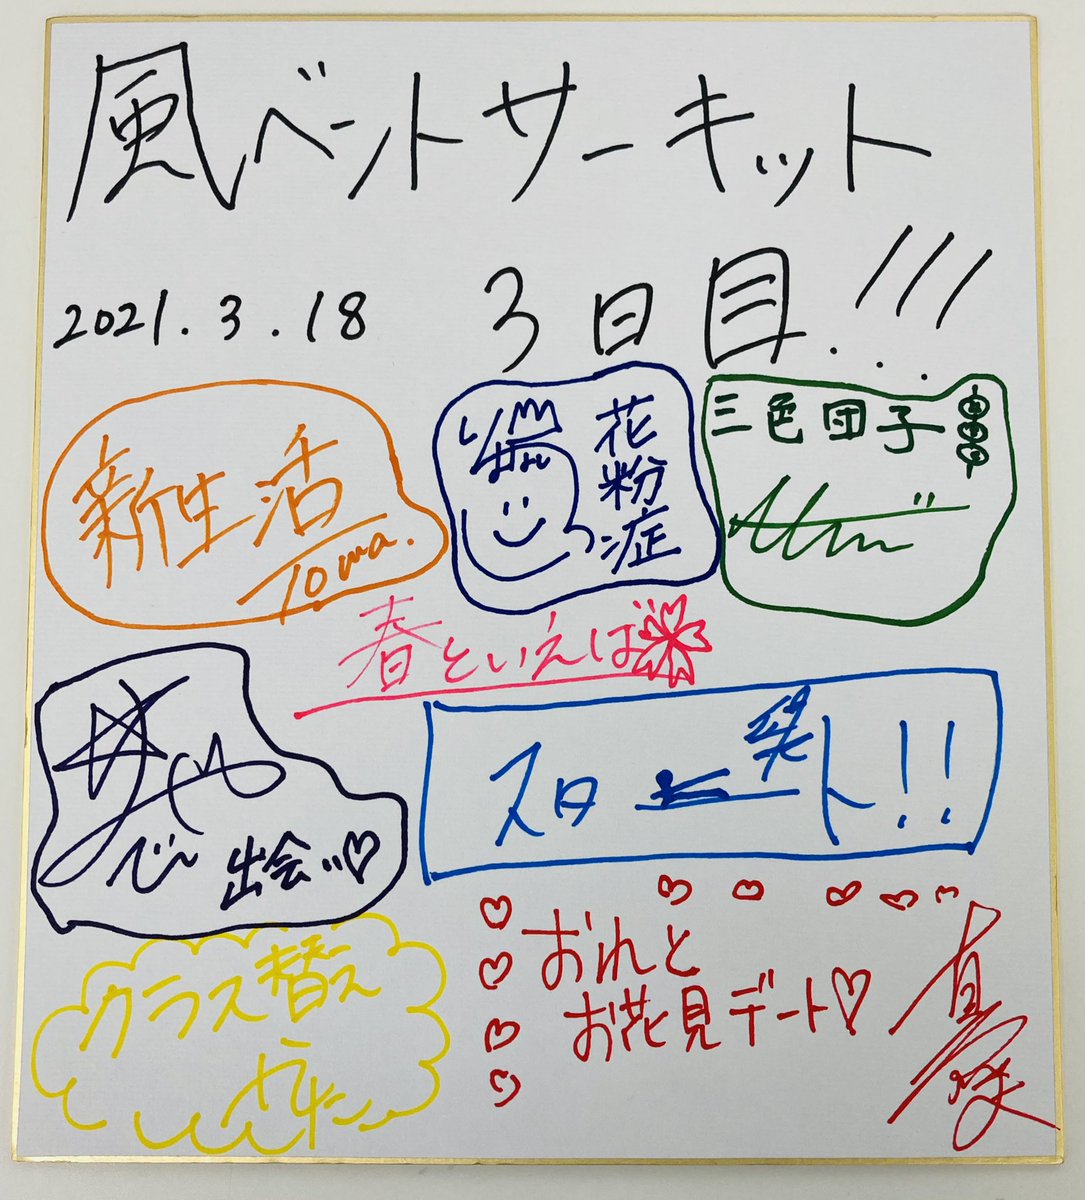 風ベントサーキット
2021.3.18 3日目!!!
新生活
Towa.
花粉症
三色団子
春といえば
出会い♡
スロースト!!
クラス替え
おれと
お花見デート♡